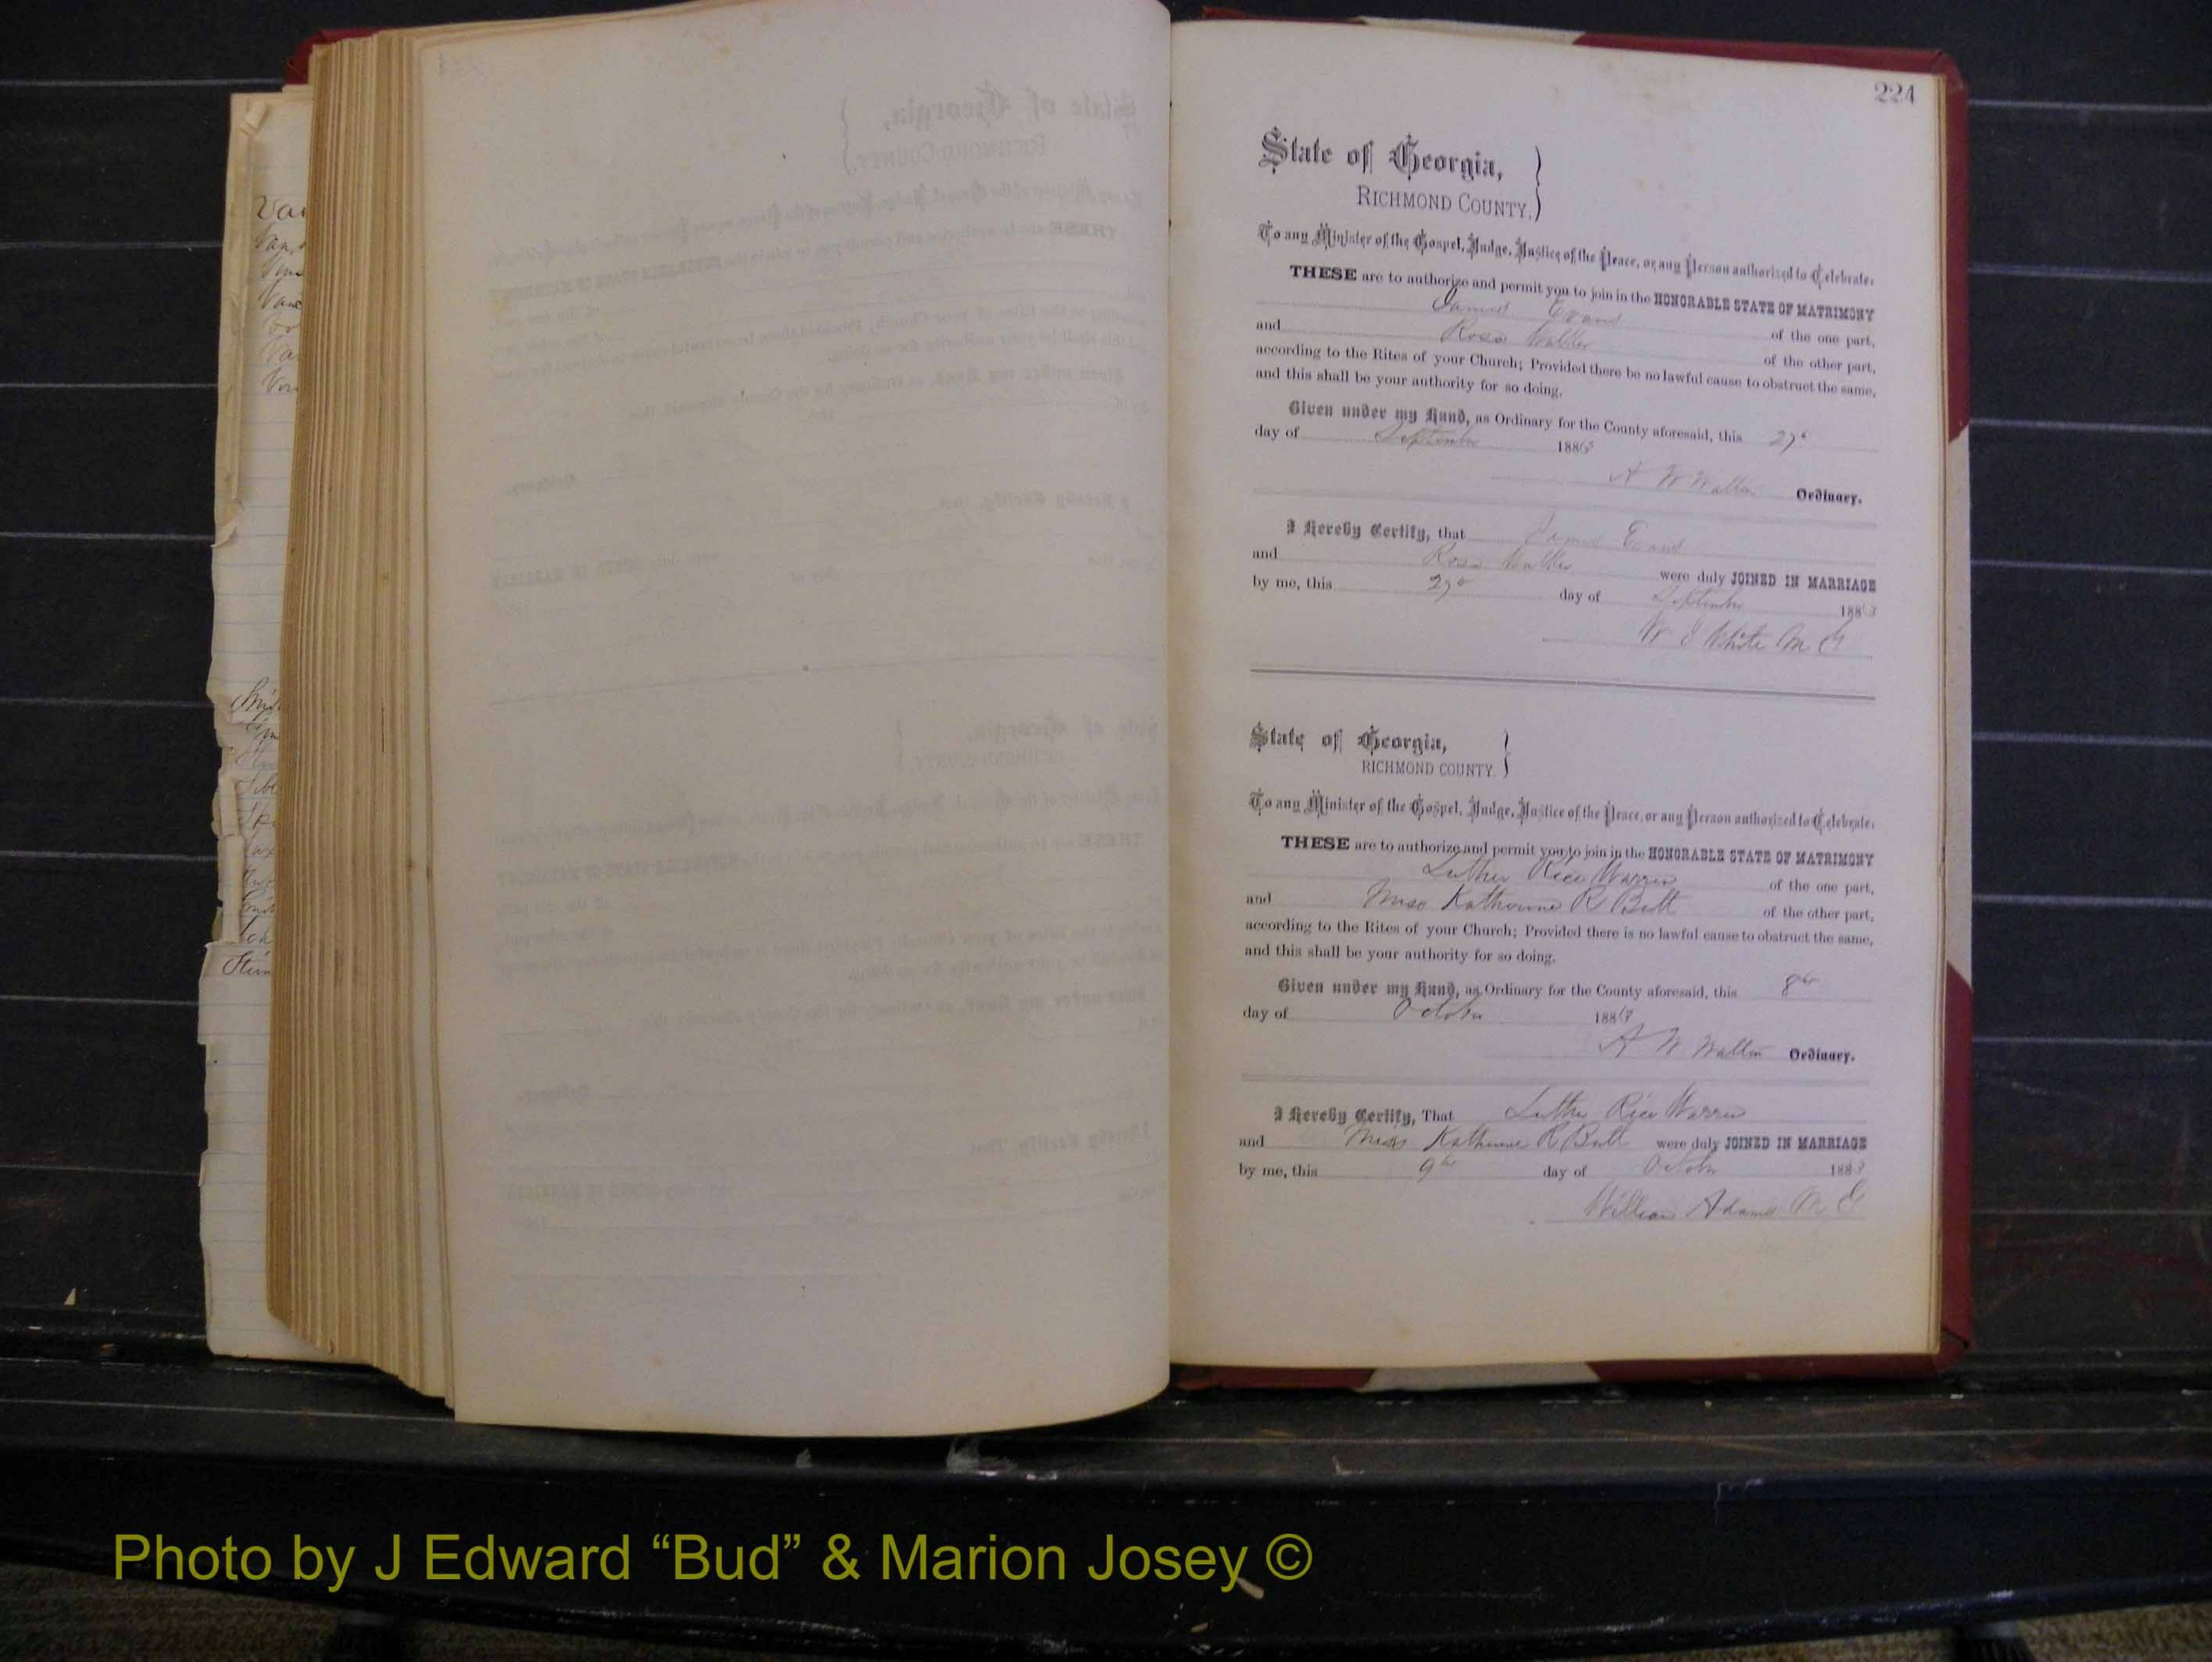 224
State of Georgia,
RICHMOND COUNTY.
To any Minister of the Gospel, Judge, Justice of the Peace, or any Person authorized to Celebrate:
THESE are to authorize and permit you to join in the HONORABLE STATE OF MATRIMONY
James Evans of the one part,
and Rosa Walker of the other part,
according to the Rites of your Church; Provided there be no lawful cause to obstruct the same,
and this shall be your authority for so doing.
Given under my Hand, as Ordinary for the County aforesaid, this 27th
day of September 1883
A W Walton Ordinary.
I Hereby Certify, that James Evans
and Rosa Walker were duly JOINED IN MARRIAGE
by me, this 27th day of September 1883
W J White M G
State of Georgia,
RICHMOND COUNTY.
To any Minister of the Gospel, Judge, Justice of the Peace, or any Person authorized to Celebrate:
THESE are to authorize and permit you to join in the HONORABLE STATE OF MATRIMONY
Luther Rice Warren of the one part,
and Miss Katherine R Butt of the other part,
according to the Rites of your Church; Provided there is no lawful cause to obstruct the same,
and this shall be your authority for so doing.
Given under my Hand, as Ordinary for the County aforesaid, this 8th
day of October 1883
A W Walton Ordinary.
I Hereby Certify, That Luther Rice Warren
and Miss Katherine R Butt were duly JOINED IN MARRIAGE
by me, this 9th day of October 1883
William Adams M G
Photo by J Edward “Bud” & Marion Josey ©